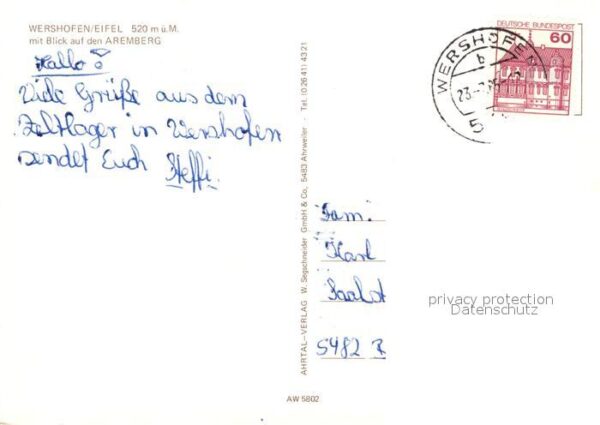 WERSHOFEN/EIFEL 520 m ü.M.
mit Blick auf den AREMBERG
Hallo!
Viele Grüße aus dem
Zeltlager in Wershofen
sendet Euch Steffi.
AHRTAL-VERLAG W. Segschneider GmbH & Co., 5483 Ahrweiler - Tel. (0 26 41) 43 21
DEUTSCHE BUNDESPOST
60
WERSHOFEN
b
5
Fam.
Karl
5482 R
privacy protection
Datenschutz
AW 5802